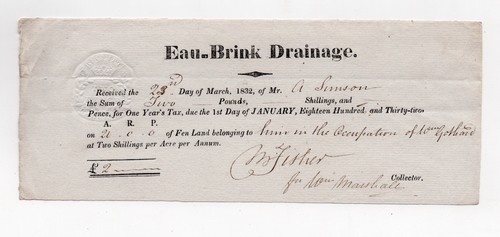 Eau-Brink Drainage.
Received the 23rd Day of March, 1832, of Mr. A Simson
the Sum of Two Pounds, Shillings, and
Pence, for One Year's Tax, due the 1st Day of JANUARY, Eighteen Hundred and Thirty-two.
A. R. P.
on 20 0 0 of Fen Land belonging to him in the Occupation of Wm
at Two Shillings per Acre per Annum.
£ 2 Wm Fisher
for Wm Marshall Collector.